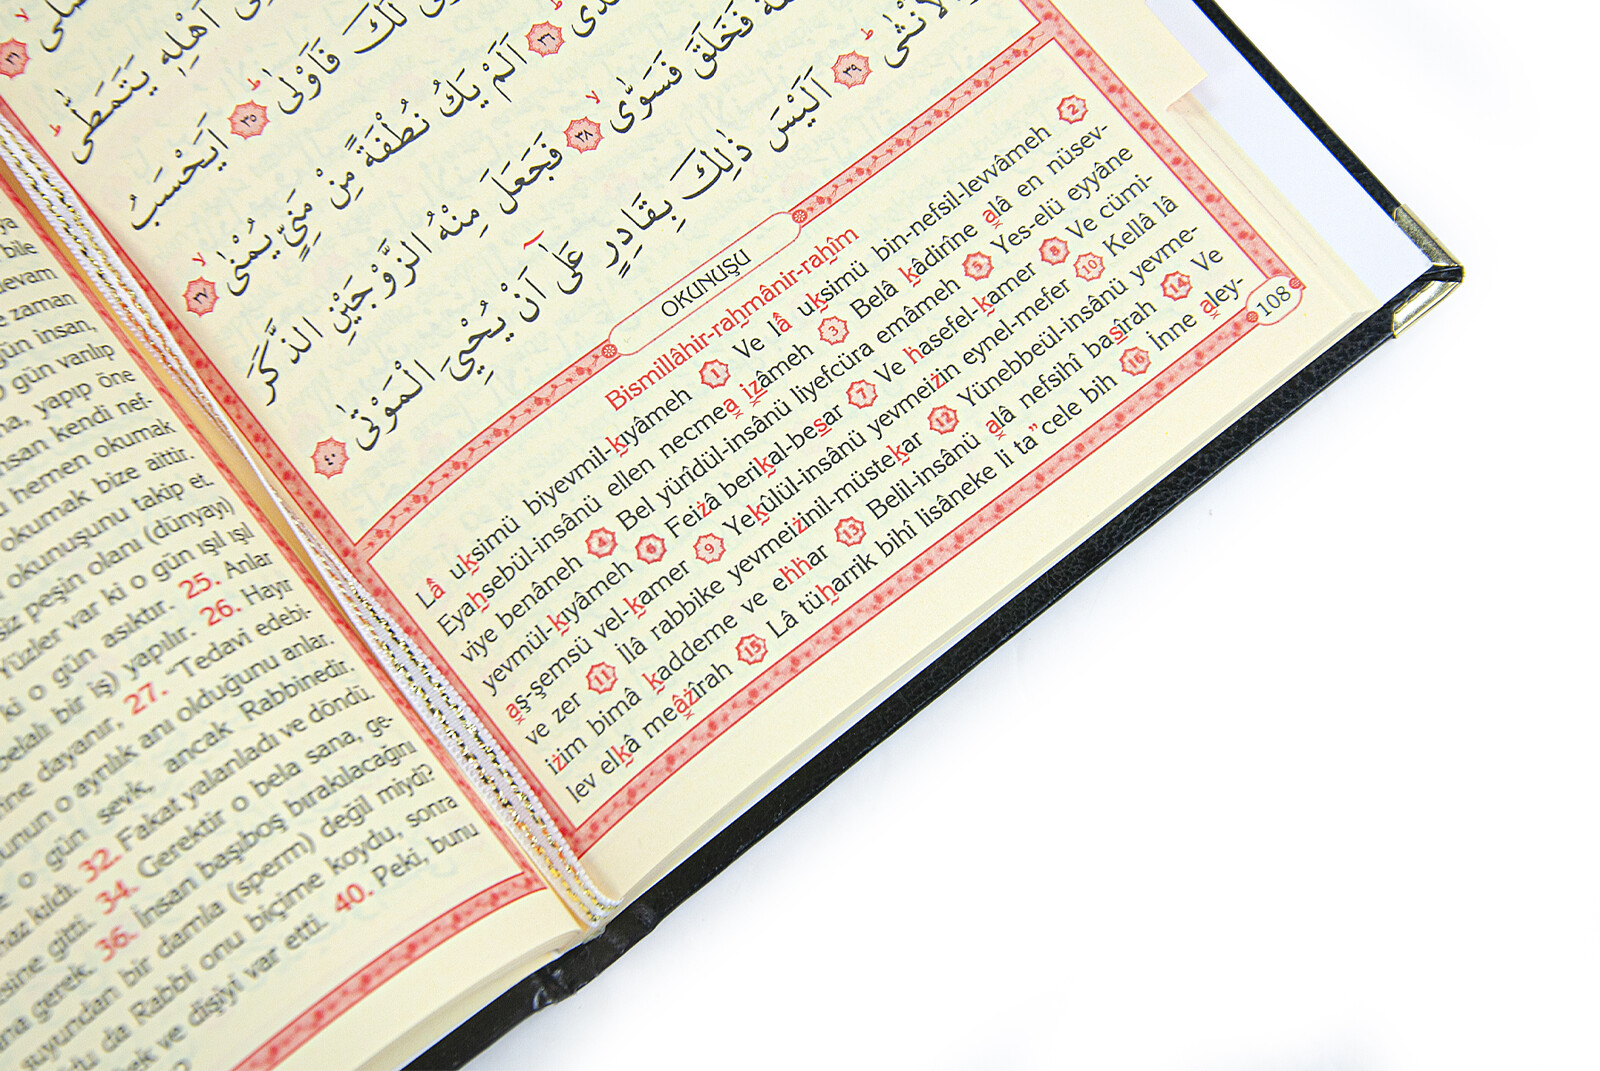 ya
bile
devam
zaman
gün insan,
gün varılıp
yapıp öne
insan kendi nef-
hemen okumak
okumak bize aittir.
okunuşunu takip et.
peşin olanı (dünyayı)
Yüzler var ki o gün ışıl ışıl
ki o gün asıktır. 25. Anlar
belalı bir iş) yapılır. 26. Hayır
dayanır, 27. “Tedavi edebi-
bunun o ayrılık anı olduğunu anlar.
o gün sevk, ancak Rabbinedir.
32. Fakat yalanladı ve döndü.
gitti. 34. Gerektir o bela sana, ge-
gerek. 36. İnsan başıboş bırakılacağını
suyundan bir damla (sperm) değil miydi?
da Rabbi onu biçime koydu, sonra
ve dişiyi var etti. 40. Peki, bunu
اَهْلِه۪ يَتَمَطّٰى
لَكَ فَاَوْلٰى ﴿٣٥﴾ اَيَحْسَبُ
﴿٣٦﴾ اَلَمْ يَكُ نُطْفَةً مِنْ مَنِيٍّ يُمْنٰى ﴿٣٧﴾
فَخَلَقَ فَسَوّٰى ﴿٣٨﴾ فَجَعَلَ مِنْهُ الزَّوْجَيْنِ الذَّكَرَ
وَالْاُنْثٰى ﴿٣٩﴾ اَلَيْسَ ذٰلِكَ بِقَادِرٍ عَلٰٓى اَنْ يُحْيِيَ الْمَوْتٰى ﴿٤٠﴾
OKUNUŞU
Bismillâhir-rahmânir-rahîm
Lâ uksimü biyevmil-kıyâmeh 1 Ve lâ uksimü bin-nefsil-levvâmeh 2
Eyahsebül-insânü ellen necmea izâmeh 3 Belâ kâdirîne alâ en nüsev-
viye benâneh 4 Bel yürîdül-insânü liyefcüra emâmeh 5 Yes-elü eyyâne
yevmül-kıyâmeh 6 Feizâ berikal-besar 7 Ve hasefel-kamer 8 Ve cümi-
aş-şemsü vel-kamer 9 Yekûlül-insânü yevmeizin eynel-mefer 10 Kellâ lâ
ve zer 11 İlâ rabbike yevmeizinil-müstekar 12 Yünebbeül-insânü yevme-
izim bimâ kaddeme ve ehhar 13 Belil-insânü alâ nefsihî basîrah 14 Ve
lev elkâ meâzîrah 15 Lâ tüharrik bihî lisâneke li ta”cele bih 16 İnne aley-
108